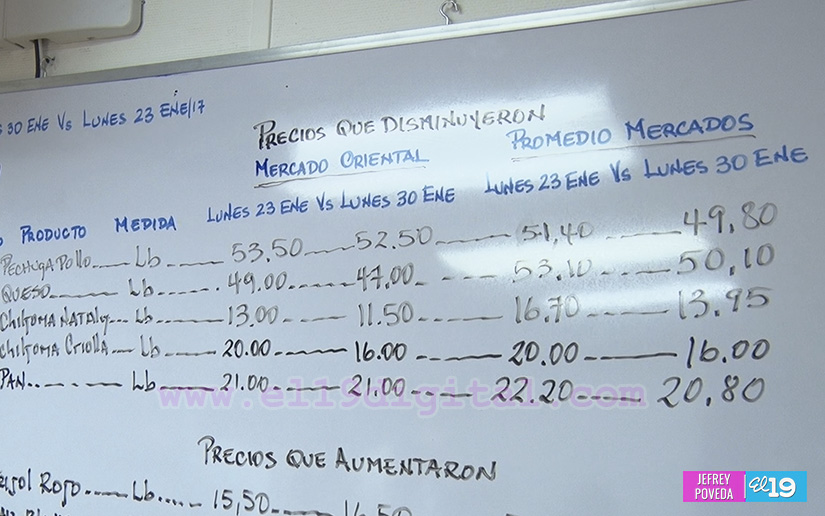 30 ENE Vs LUNES 23 ENE/17
PRECIOS QUE DISMINUYERON
MERCADO ORIENTAL PROMEDIO MERCADOS
PRODUCTO MEDIDA LUNES 23 ENE Vs LUNES 30 ENE LUNES 23 ENE Vs LUNES 30 ENE
PECHUGA POLLO Lb 53.50 52.50 51,40 49,80
QUESO Lb 49.00 47.00 53.10 50,10
CHILTOMA NATALY Lb 13.00 11.50 16.70 13.95
CHILTOMA CRIOLLA Lb 20.00 16.00 20.00 16.00
PAN Lb 21.00 21.00 22.20 20,80
www.el19digital.com
PRECIOS QUE AUMENTARON
ROJO Lb 15,50 16.50
JEFREY POVEDA El 19